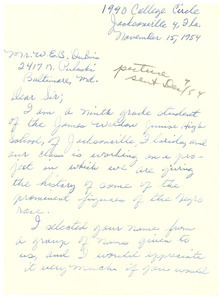 1940 College Circle
Jacksonville 9, Fla.
November 15, 1954
Mr. W.E.B. Dubois
2417 N. Pulaski
Baltimore, Md.
picture
sent Dec 9/54
Dear Sir;
I am a ninth grade student
of the James Weldon Junior High
School, of Jacksonville, Florida, and
our class is working on a pro-
ject in which we are giving
the history of some of the
prominent figures of the Negro
race.
I selected your name from
a group of names given to
us, and I would appreciate
it very much if you would